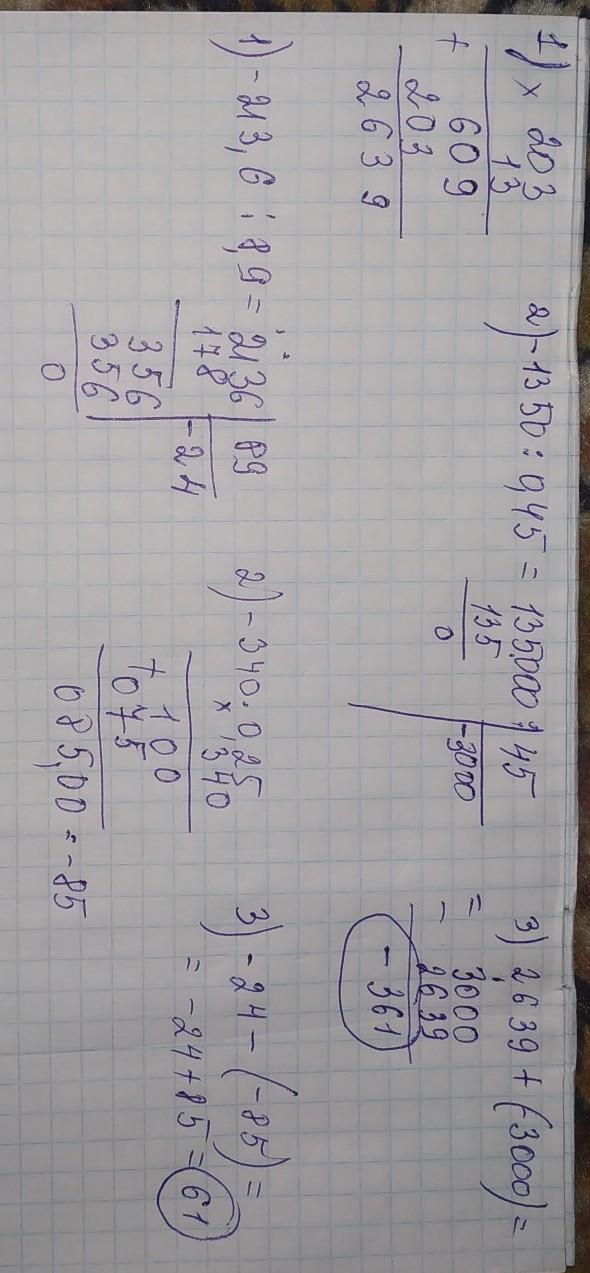 1) × 203
13
+ 609
203
2639
2) -1350 : 0,45 = 135000 | 45
135 | -3000
0
3) 2639 + (-3000) =
= - 3000
2639
-361
1) -213,6 : 8,9 = 2136 | 89
178 | -24
356
356
0
2) -340 · 0,25
× 340
+ 100
075
085,00 = -85
3) -24 - (-85) =
= -24 + 85 = 61